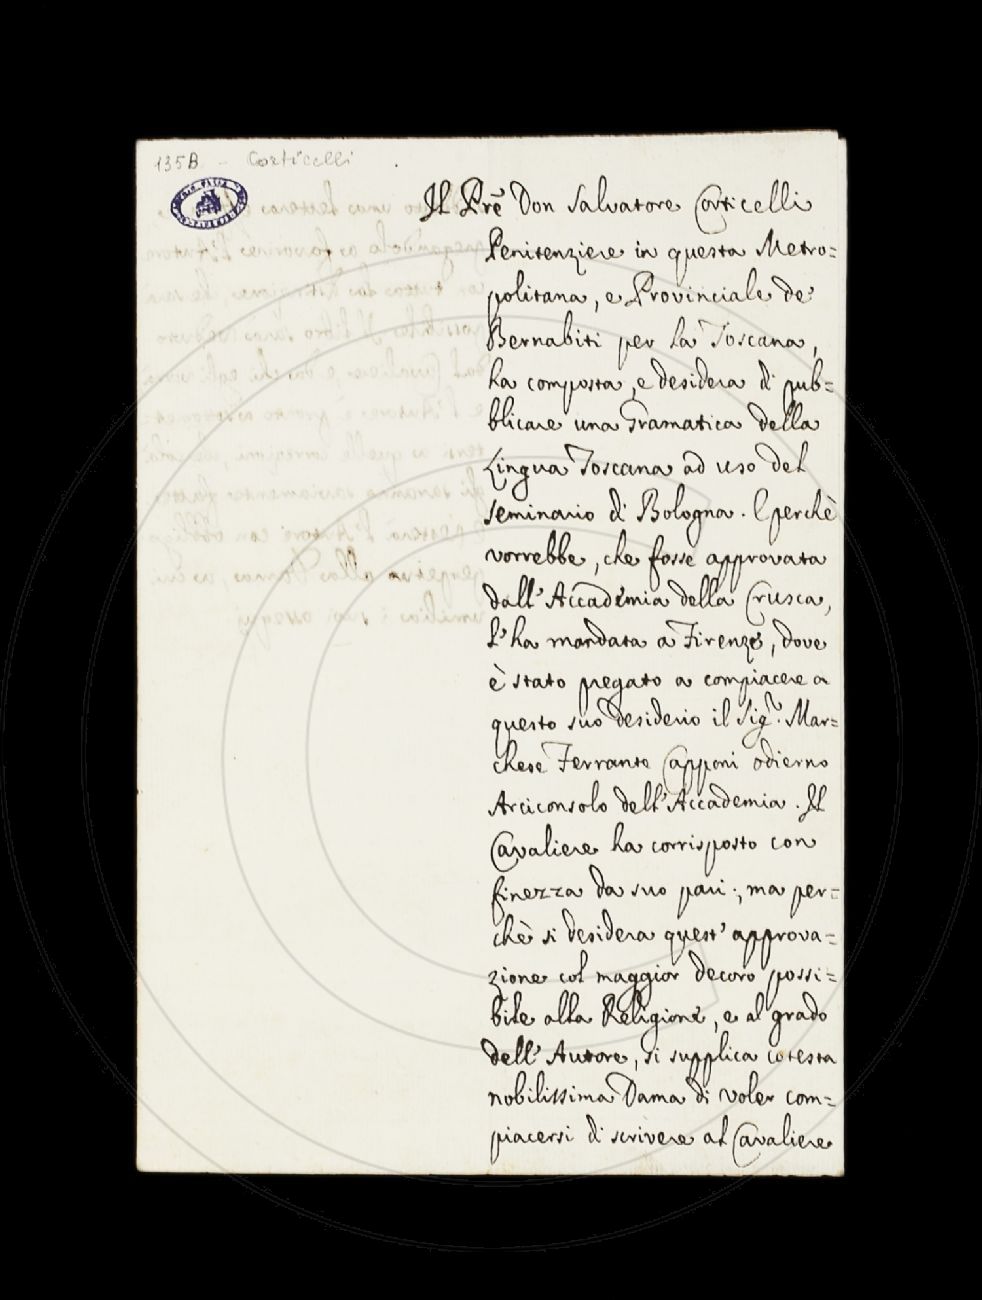 135B - Corticelli
Il Prẽ Don Salvatore Corticelli
Penitenziere in questa Metro=
politana, e Provinciale de'
Bernabiti per la Toscana,
ha composta, e desidera di pub=
blicare una Gramatica della
Lingua Toscana ad uso del
seminario di Bologna. E perchè
vorrebbe, che fosse approvata
dall'Accademia della Crusca,
l'ha mandata a Firenze, dove
è stato pregato a compiacere a
questo suo desiderio il Sigr. Mar=
chese Ferrante Capponi odierno
Arciconsolo dell'Accademia. Il
Cavaliere ha corrisposto con
finezza da suo pari; ma per=
chè si desidera quest'approva=
zione col maggior decoro possi=
bile alla Religione, e al grado
dell'Autore, si supplica cotesta
nobilissima Dama di voler com=
piacersi di scrivere al Cavaliere